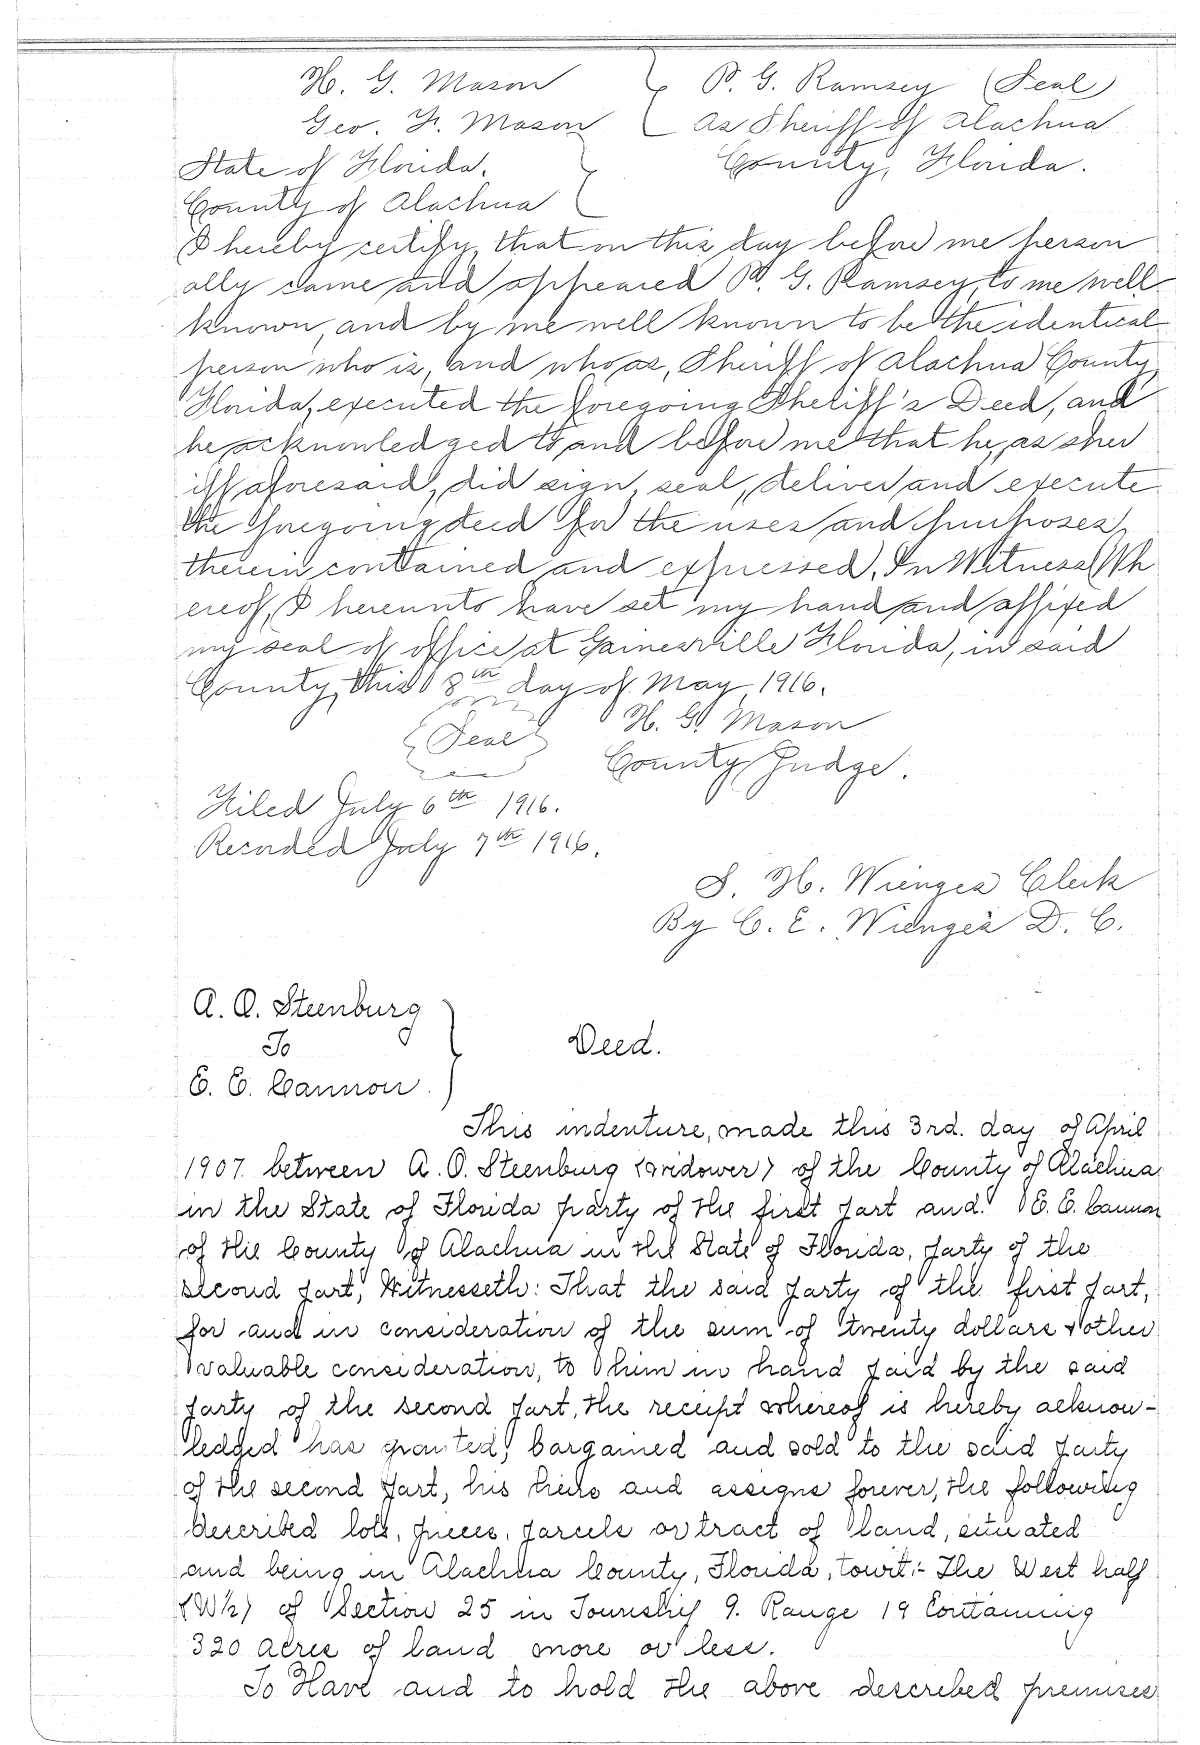 H. G. Mason } P. G. Ramsey (Seal)
Geo. F. Mason } As Sheriff of Alachua
State of Florida. } County, Florida.
County of Alachua }
I hereby certify, that on this day before me person
ally came and appeared P. G. Ramsey, to me well
known, and by me well known to be the identical
person who is, and who as, Sheriff of Alachua County,
Florida, executed the foregoing Sheriff's Deed, and
he acknowledged to and before me that he, as sher
iff aforesaid, did sign, seal, deliver and execute
the foregoing deed for the uses and purposes
therein contained and expressed. In Witness Wh
ereof, I hereunto have set my hand and affixed
my seal of office at Gainesville Florida, in said
County, this 8th day of May, 1916.
{Seal} H. G. Mason
County Judge.
Filed July 6th 1916.
Recorded July 7th 1916.
S. H. Wienges Clerk
By C. E. Wienges D. C.
A. O. Steenburg }
To } Deed.
E. E. Cannon. }
This indenture, made this 3rd. day of April
1907 between A. O. Steenburg (widower) of the County of Alachua
in the State of Florida party of the first part and E. E. Cannon
of the County of Alachua in the State of Florida, party of the
second part, Witnesseth: That the said party of the first part,
for and in consideration of the sum of twenty dollars & other
valuable consideration, to him in hand paid by the said
party of the second part, the receipt whereof is hereby acknow-
ledged has granted, bargained and sold to the said party
of the second part, his heirs and assigns forever, the following
described lots, pieces, parcels or tract of land, situated
and being in Alachua County, Florida, towit:- The West half
(W½) of Section 25 in Township 9. Range 19 Containing
320 acres of land more or less.
To Have and to hold the above described premises